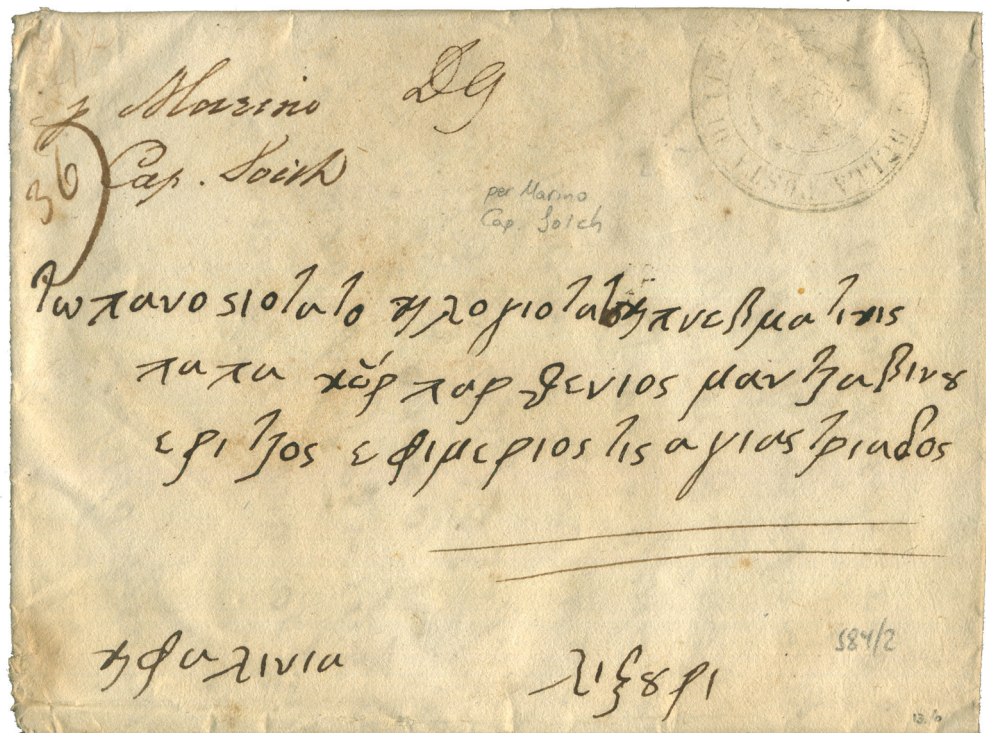 p Marino DG
Cap. Soich
36
per Marino
Cap. Soich
DELLA POSTA
τω πανοσιοτατο κ λογιοτατο κ πνεβματικις
παπα κὺρ παρθενιος μαντζαβινȣ
εφιμεριος τις αγιας τριαδος
κφαλινια λιξȣρι
584/2